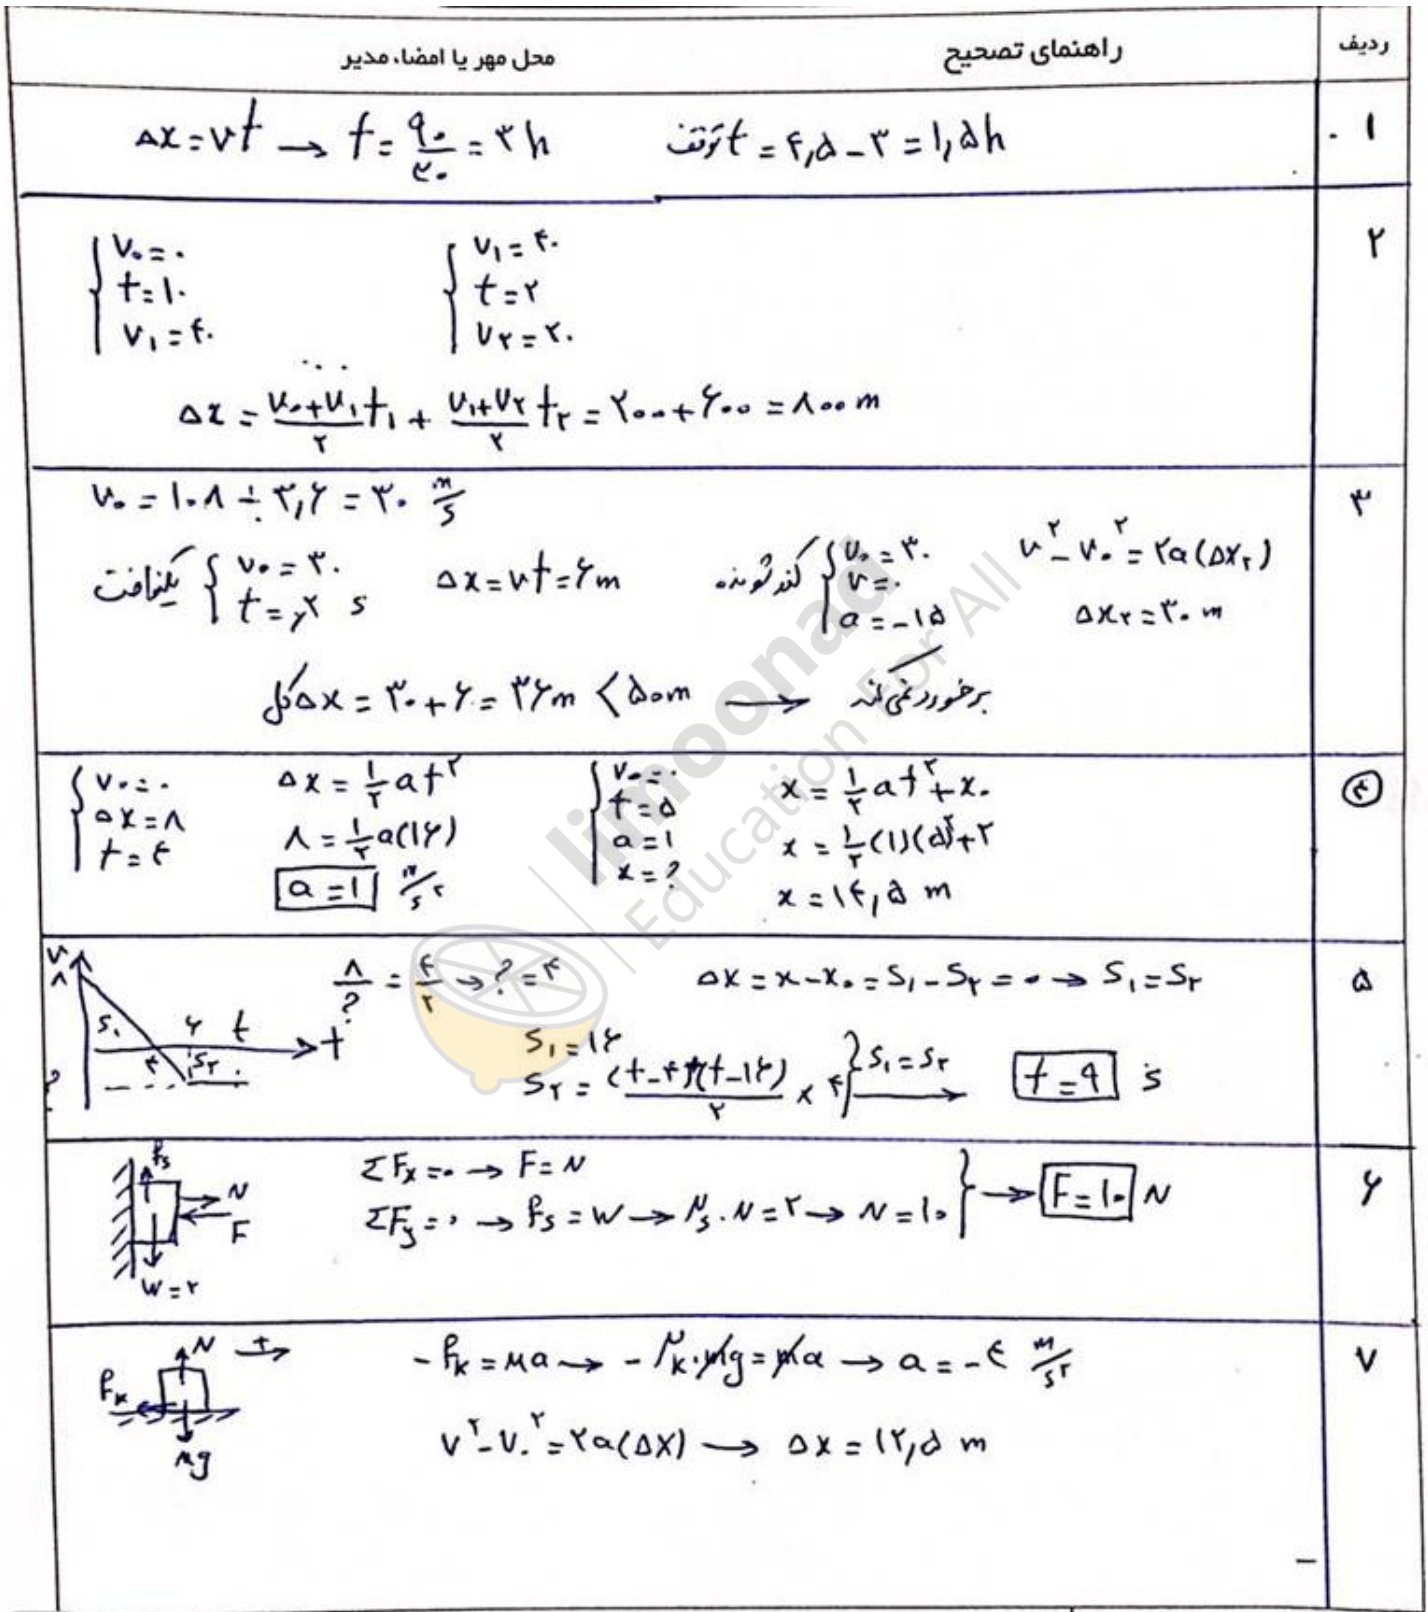 ردیف
راهنمای تصحیح
محل مهر یا امضاء مدیر
۱
Δx = vt → t = ۹۰/۳۰ = ۳ h
t توقف = ۴,۵ - ۳ = ۱,۵ h
۲
v₀ = ۰
t = ۱۰
v₁ = ۴۰
v₁ = ۴۰
t = ۲۰
v₂ = ۲۰
Δx = (v₀+v₁)/۲ t₁ + (v₁+v₂)/۲ t₂ = ۲۰۰ + ۶۰۰ = ۸۰۰ m
۳
v₀ = ۱۰۸ ÷ ۳,۶ = ۳۰ m/s
یکنواخت
v₀ = ۳۰
t = ,۲ s
Δx = vt = ۶ m
کند شونده
v₀ = ۳۰
v = ۰
a = -۱۵
v² - v₀² = ۲a(Δx₂)
Δx₂ = ۳۰ m
Δx کل = ۳۰ + ۶ = ۳۶ m < ۵۰ m → برخورد نمی کند
۴
v₀ = ۰
Δx = ۸
t = ۴
Δx = ۱/۲ at²
۸ = ۱/۲ a(۱۶)
a = ۱ m/s²
v₀ = ۰
t = ۵
a = ۱
x = ?
x = ۱/۲ at² + x₀
x = ۱/۲ (۱)(۵)² + ۲
x = ۱۴,۵ m
۵
v
۸
S₁
۶ t
۴
S₂
t
?
۸/? = ۴/۲ → ? = ۴
Δx = x - x₀ = S₁ - S₂ = ۰ → S₁ = S₂
S₁ = ۱۶
S₂ = (t-۴)+(t-۶)/۲ × ۴
S₁ = S₂
t = ۹ s
۶
fs
N
F
W = ۲
ΣFx = ۰ → F = N
ΣFy = ۰ → fs = W → μs . N = ۲ → N = ۱۰
→ F = ۱۰ N
۷
N
+
fk
mg
-fk = ma → -μk . mg = ma → a = -۴ m/s²
v² - v₀² = ۲a(Δx) → Δx = ۱۲,۵ m
limoonad
Education For All